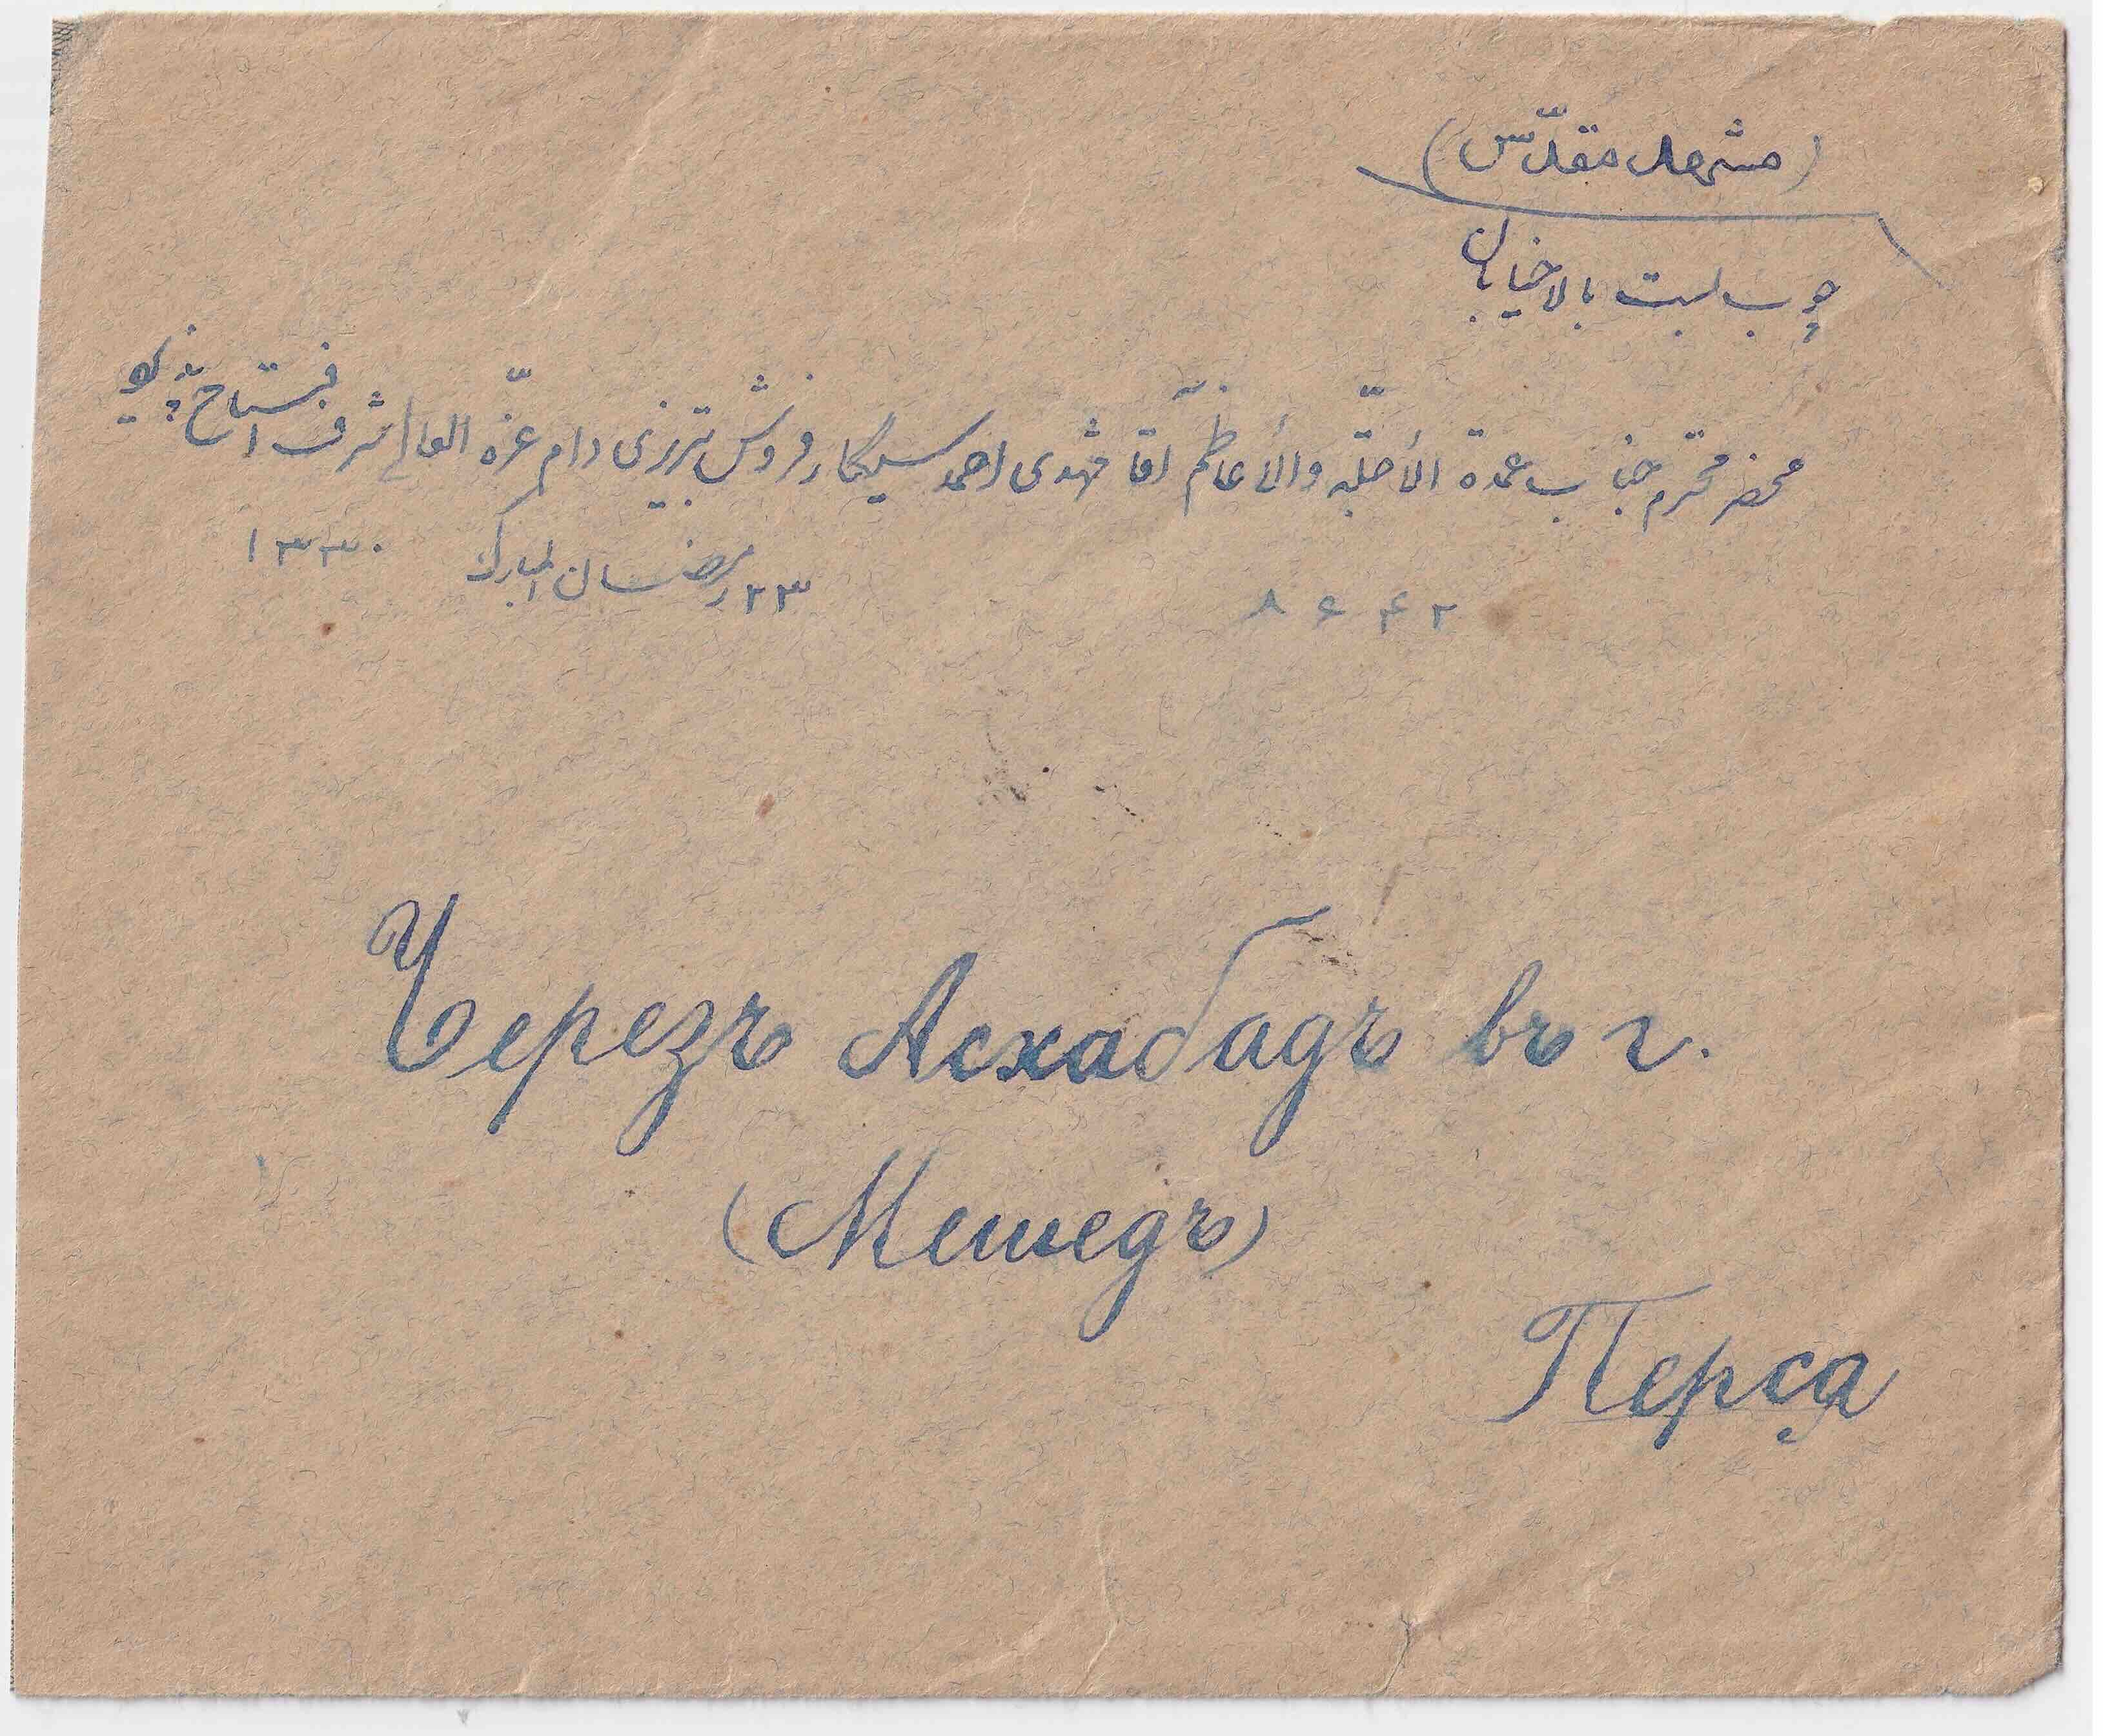 (مشهد مقدّس)
بست بالاخیابان
محضر محترم جناب عمدة الأجلّه والأعاظم آقا مشهدی احمد سیگار فروش تبریزی دام عزّه العالی شرف افتتاح پذیرد
٢٣ رمضان المبارک ١٣٣٠
٨ ٤ ٤ ٢
Черезъ Асхабадъ въ г.
(Мешедъ)
Перся